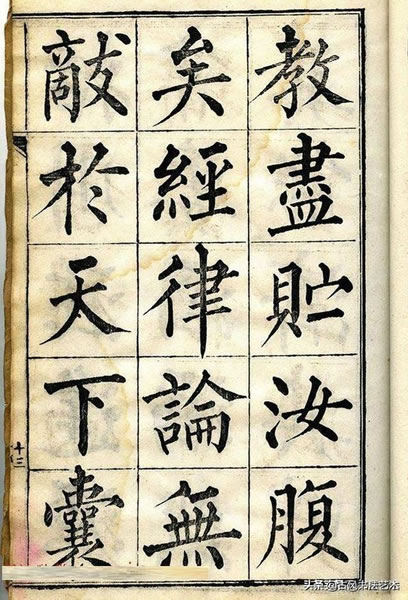 教盡貯汝腹
矣經律論無
敵於天下囊
头条 @古风书法艺术